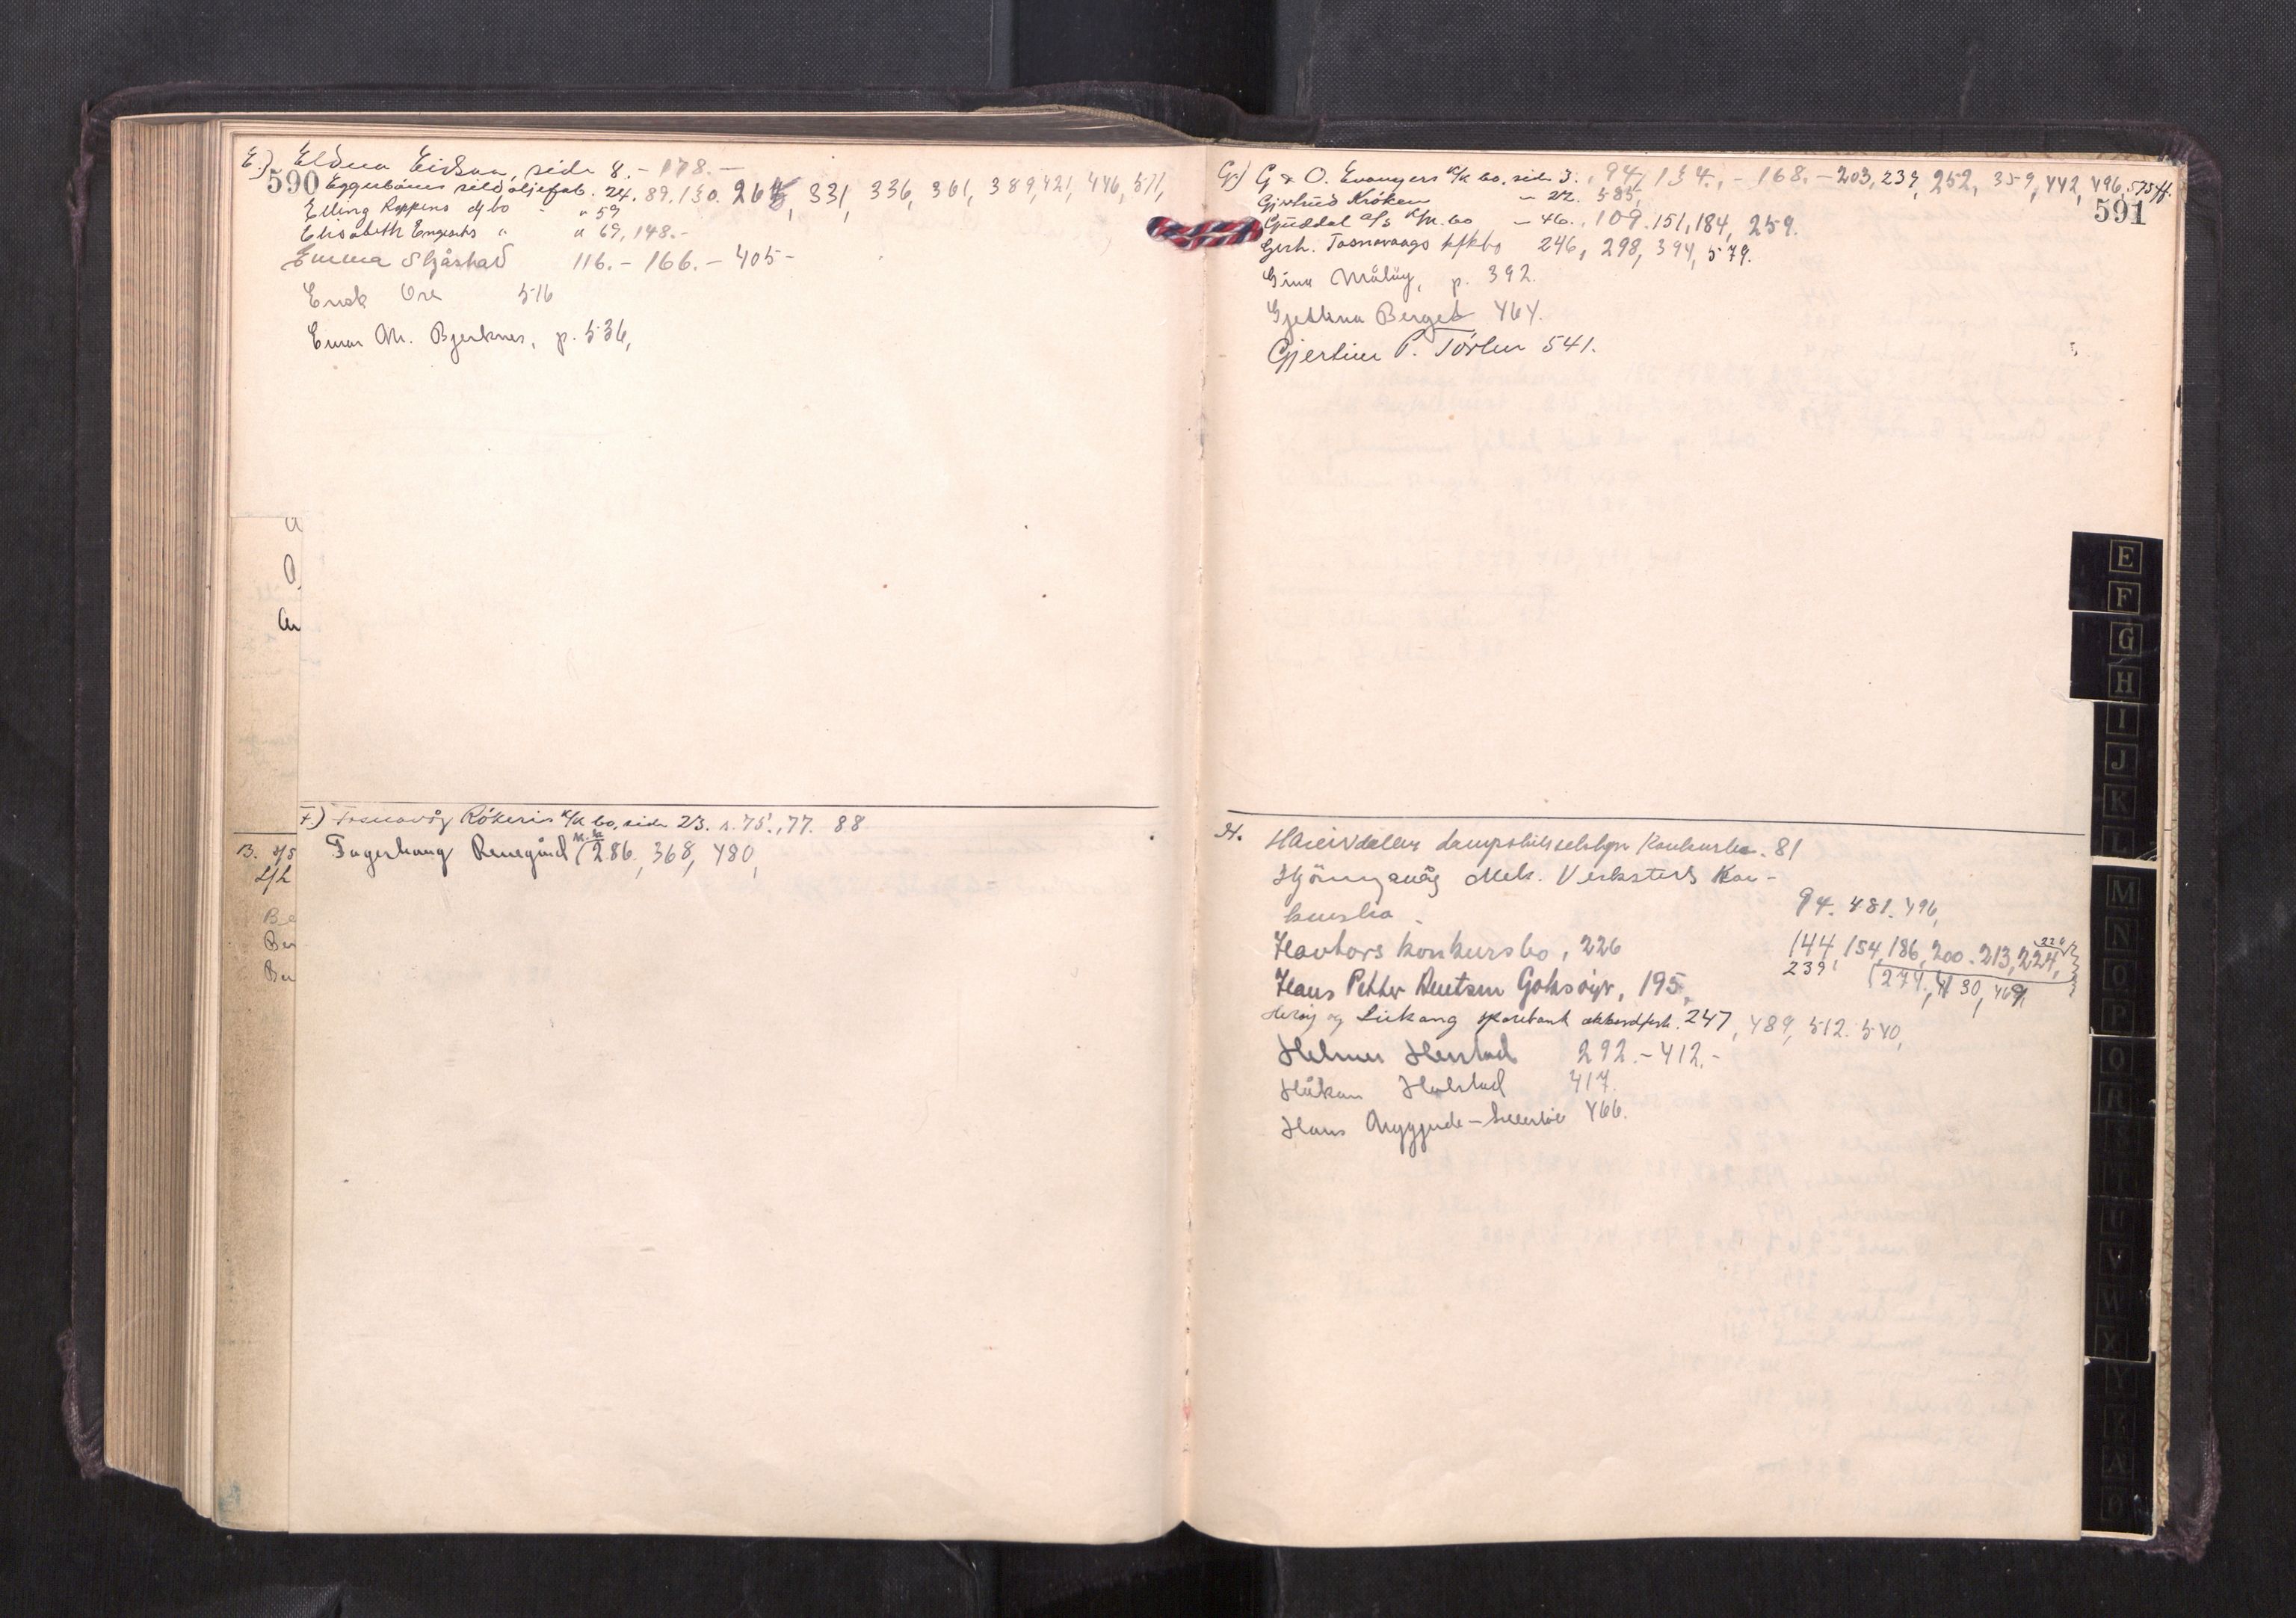 E.) Eldua Eidsaa, side 8. - 178. -
590 Eggesbönes sildoljefab. 24. 89. 130. 264, 331, 336, 361, 389, 421, 446, 511,
Elling Roppens d/bo " " 59
Elisabeth Engeseths " " 69, 148. -
Emma Skjåstad 116. - 166. - 405 -
Enok Ose 516
Einar M. Bjerknes, p. 536,
F.) Fosnavåg Rökeris k/k bo, side 23. s. 75, 77. 88
Fagerhaug Rensgård (286, 368, 480,
B.
Be
Be
Be
G.) G & O. Evangers k/k bo, side 3., 94, 134., - 168. - 203, 239, 252, 359, 442, 496, 575ff.
591
Gjertrud Kroken - 22. 585,
Gjüddal a/s k/k. bo - 46., 109. 151, 184, 259.
Gerh. Fosnavaags k/kbo 246, 298, 394, 579.
Gina Måløy, p. 392.
Gjethna Berget 464.
Gjertine P. Törlen 541.
H. Hareidsdalens dampskibsselskaps konkursbo. 81
Hjörungavåg Mek. Verksteds Kon-
kursbo. 94. 481. 496,
144, 154, 186, 200. 213, 224, 226
Havtors konkursbo, 226
239, (274, 430, 469,
Hans Petter Knutsen Goksøyr, 195,
Herøy og Leikang sparebank akkordfork. 247, 489, 512. 540,
Helmer Herstad 292. - 412. -
Håkon Holstad 417.
Hans Myggjerde - 466.
E
F
G
H
I
J
K
L
M
N
O
P
Q
R
S
T
U
V
W
X
Y
Z
Æ
Ø